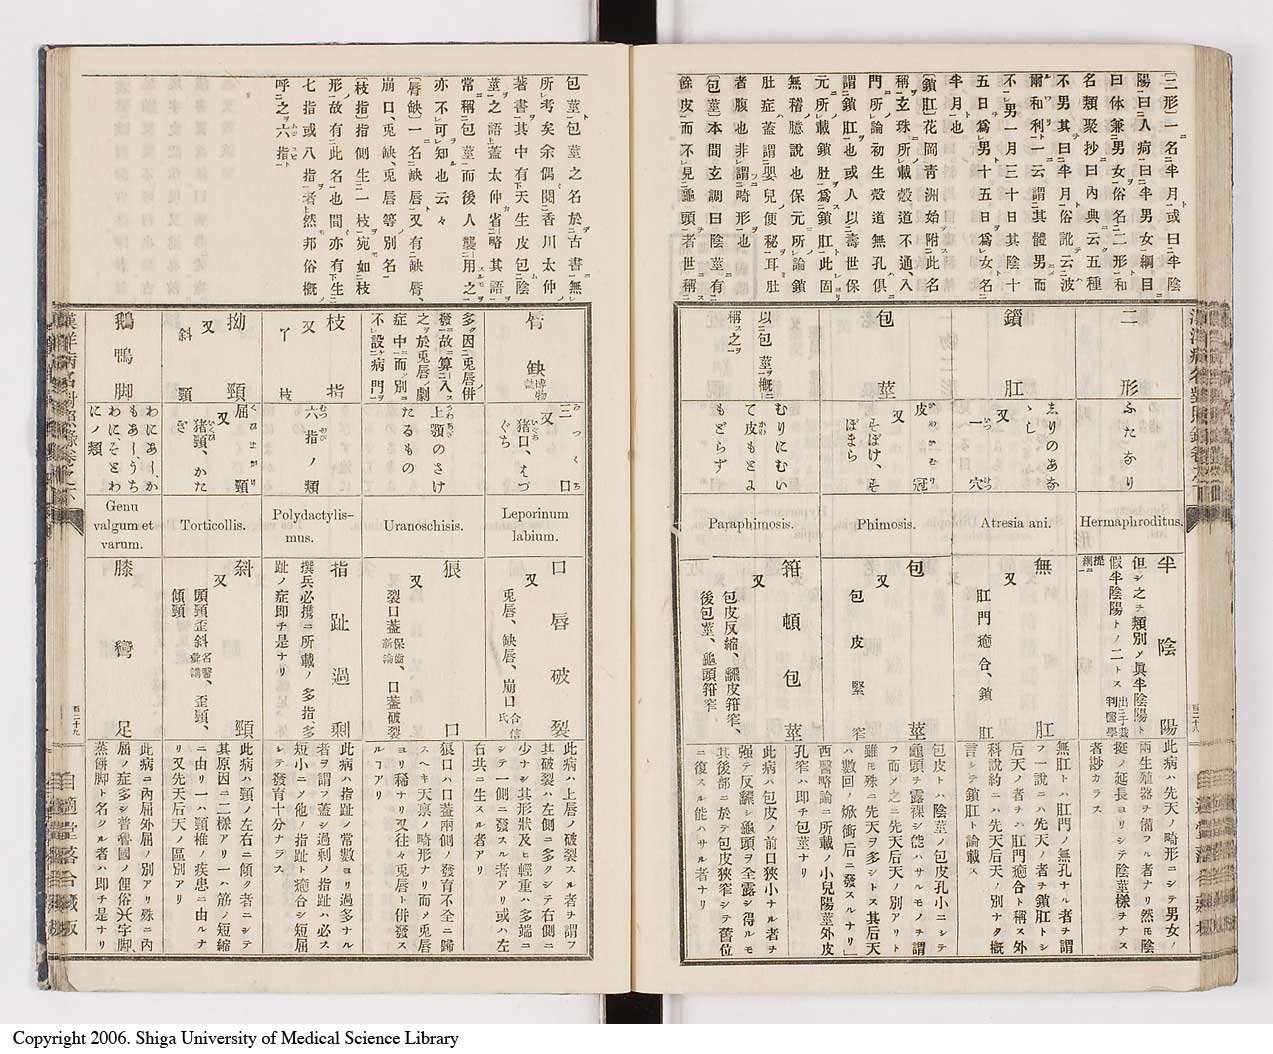 〔二形〕一名半月或曰半陰
陽曰人痾曰半男女綱目
曰体兼男女俗名二形和
名類聚抄曰內典云五種
不男其曰半月俗訛云波
爾和利一云謂其體男而
不男一月三十日其陰十
五日爲男十五日爲女名
半月也
〔鎖肛〕花岡青洲始附此名
稱玄珠所載殻道不通入
門所論初生殻道無孔俱
謂鎖肛也或人以壽世保
元所載鎖肚爲鎖肛此固
無稽臆說也保元所論鎖
肚症蓋謂嬰兒便秘耳肚
者腹也非謂畸形也
〔包莖〕本間玄調曰陰莖有
餘皮而不見龜頭者世稱
二形
鎖肛
包莖
以包莖概
稱之
ふたなり
ゑりのあな
ゝし
又
一穴
皮冠
又
そぼけ、そ
ぼまら
むりにむい
て皮もとよ
もどらず
Hermaphroditus.
Atresia ani.
Phimosis.
Paraphimosis.
半陰陽
但シ之ヲ類別メ眞半陰陽ト
假半陰陽トノ二トス
無肛
又
肛門癒合、鎖肛
包莖
又
包皮緊窄
箝頓包莖
又
包皮反縮、飜皮箝窄、
後包莖、龜頭箝窄
此病ハ先天ノ畸形ニシテ男女ノ
兩生殖器ヲ備フル者ナリ然モ陰
挺ノ延長ヨリシテ陰莖樣ヲナス
者尠カラス
無肛トハ肛門ノ無孔ナル者ヲ謂
フ一說ニハ先天ノ者ヲ鎖肛トシ
后天ノ者ヲハ肛門癒合ト稱ス外
科說約ニハ先天后天ノ別ナク概
言シテ鎖肛ト論載ス
包皮トハ陰莖ノ包皮孔小ニシテ
龜頭ヲ露裸シ能ハサルモノヲ謂
フ而メ之ニ先天后天ノ別アリト
雖モ殊ニ先天ヲ多シトス其后天
ハ數回ノ焮衝后ニ發スルナリ」
西醫略論ニ所載ノ小兒陽莖外皮
孔窄ハ即チ包莖ナリ
此病ハ包皮ノ前口狹小ナル者ヲ
强テ反飜シ龜頭ヲ全露シ得ルモ
其後部ニ於テ包皮狹窄シテ舊位
ニ復スル能ハサル者ナリ
包莖包莖之名於古書無
所考矣余偶閱香川太仲
著書其中有天生皮包陰
莖之語蓋太仲省略其語
常稱包莖而後人襲用之
亦不可知也云々
〔唇缺〕一名缺唇又有缺唇、
崩口、兎缺、兎唇等別名
〔枝指〕指側生一枝宛如枝
形故有此名也間亦有生
七指或八指者然邦俗概
呼之六指
唇缺
多因兎唇併
發故算入
之於兎唇劇
症中而別
不設病門
枝指
又
丫枝
拗頸
又
斜頸
鵝鴨脚
三口
又
猪口、えづ
ぐち
上顎のさけ
たるもの
六指ノ類
屈頸
又
猪頸、かた
ぎ
わにあー、か
もあー、うち
わに、そとわ
にノ類
Leporinum
labium.
Uranoschisis.
Polydactylis-
mus.
Torticollis.
Genu
valgum et
varum.
口唇破裂
又
兎唇、缺唇、崩口
狼口
又
裂口蓋、口蓋破裂
指趾過剩
撰兵必携ニ所載ノ多指、多
趾ノ症即チ是ナリ
斜頸
又
頭頸歪斜、歪頸、
傾頸
膝彎足
此病ハ上唇ノ破裂スル者ヲ謂フ
其破裂ハ左側ニ多クシテ右側ニ
少ナシ其形狀及ヒ輕重ハ多端ニ
シテ一側ニ發スル者アリ或ハ左
右共ニ生スル者アリ
狼口ハ口蓋兩側ノ發育不全ニ歸
スヘキ天禀ノ畸形ナリ而メ兎唇
ヨリ稀ナリ又往々兎唇ト併發ス
ルコアリ
此病ハ指趾ノ常數ヨリ過多ナル
者ヲ謂フ蓋シ過剩ノ指趾ハ必ス
短小ニノ他ノ指趾ト癒合シ短届
シテ發育十分ナラス
此病ハ頸ノ左右ニ傾ク者ニシテ
其原因ニ二樣アリ一ハ筋ノ短縮
ニ由リ一ハ頸椎ノ疾患ニ由ルナ
リ又先天后天ノ區別アリ
此病ニ內屈外屈ノ別アリ殊ニ內
屈ノ症多シ普魯國ノ俚俗X字脚
蒸餅脚ト名クル者ハ即チ是ナリ
漢洋病名對照錄卷之六
百二十九
自適堂落合藏版
Copyright 2006. Shiga University of Medical Science Library